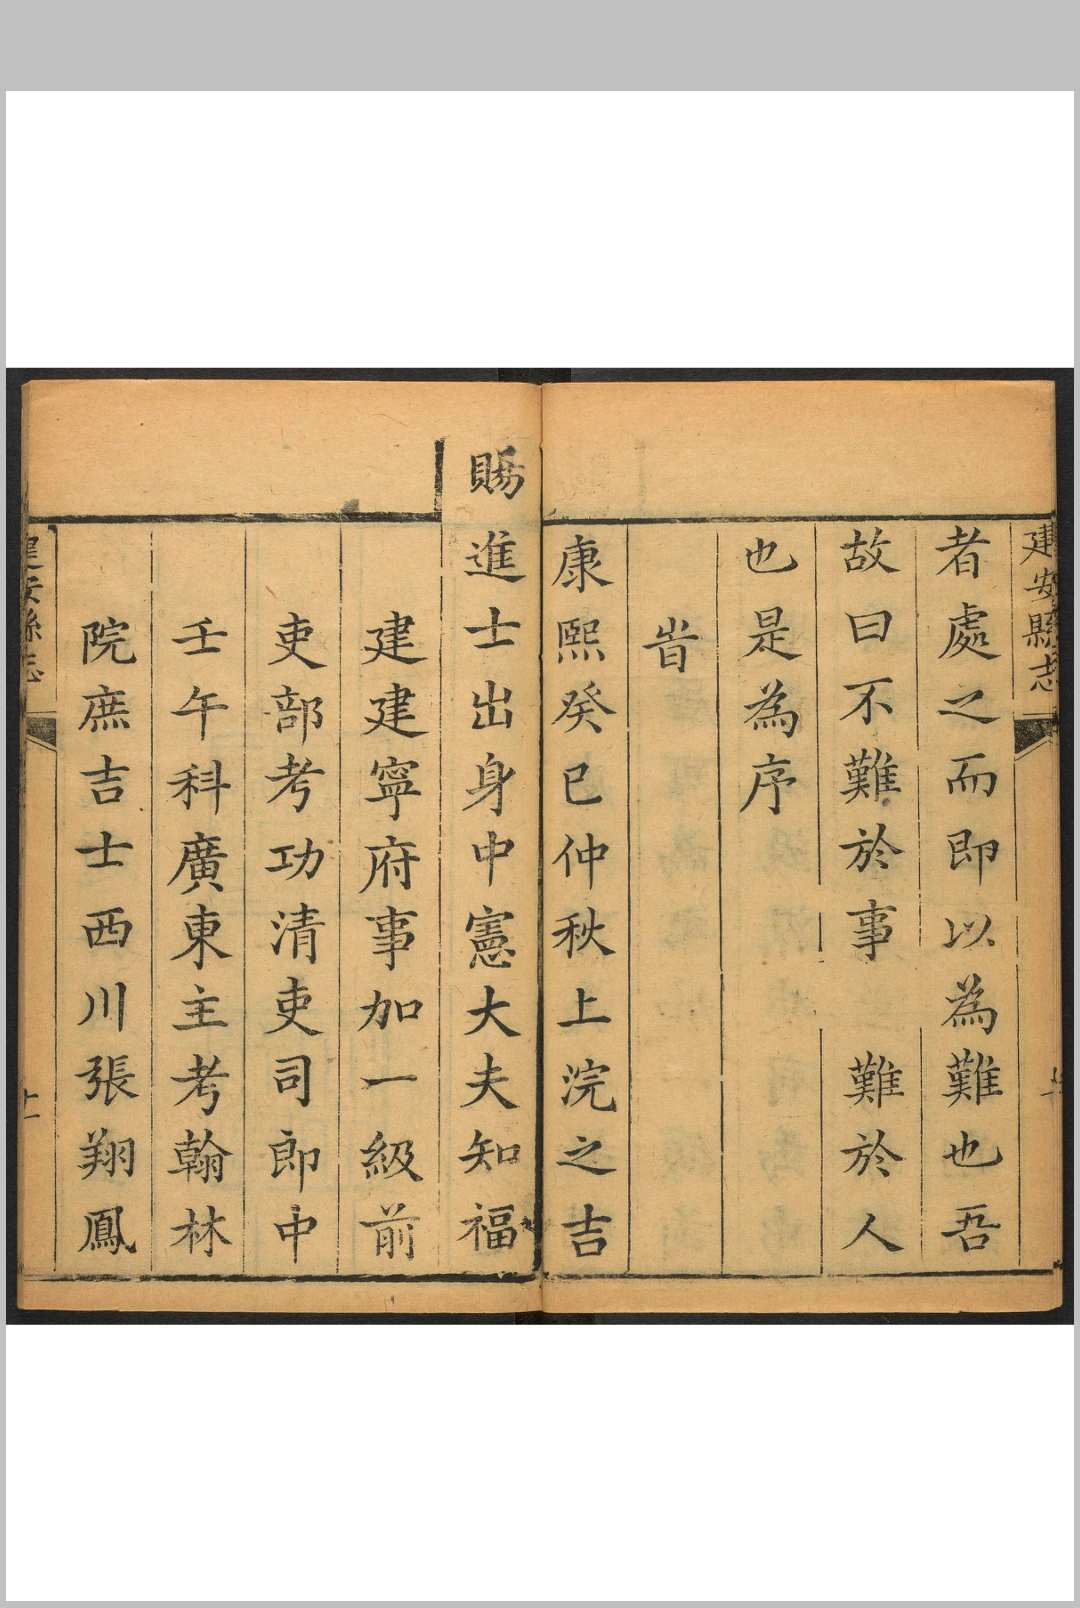 建安縣志
者處之而即以為難也吾
故曰不難於事難於人
也是為序
旹
康熙癸巳仲秋上浣之吉
賜進士出身中憲大夫知福
建建寧府事加一級前
吏部考功清吏司郎中
壬午科廣東主考翰林
院庶吉士西川張翔鳳
建安縣志
十一